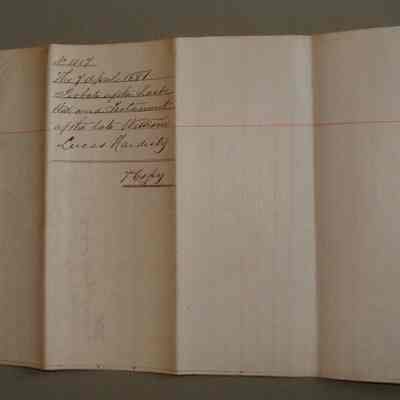 No 417.
The 7 April 1881
Probate of the Last
Will and Testament
of the late William
Lucas
Copy